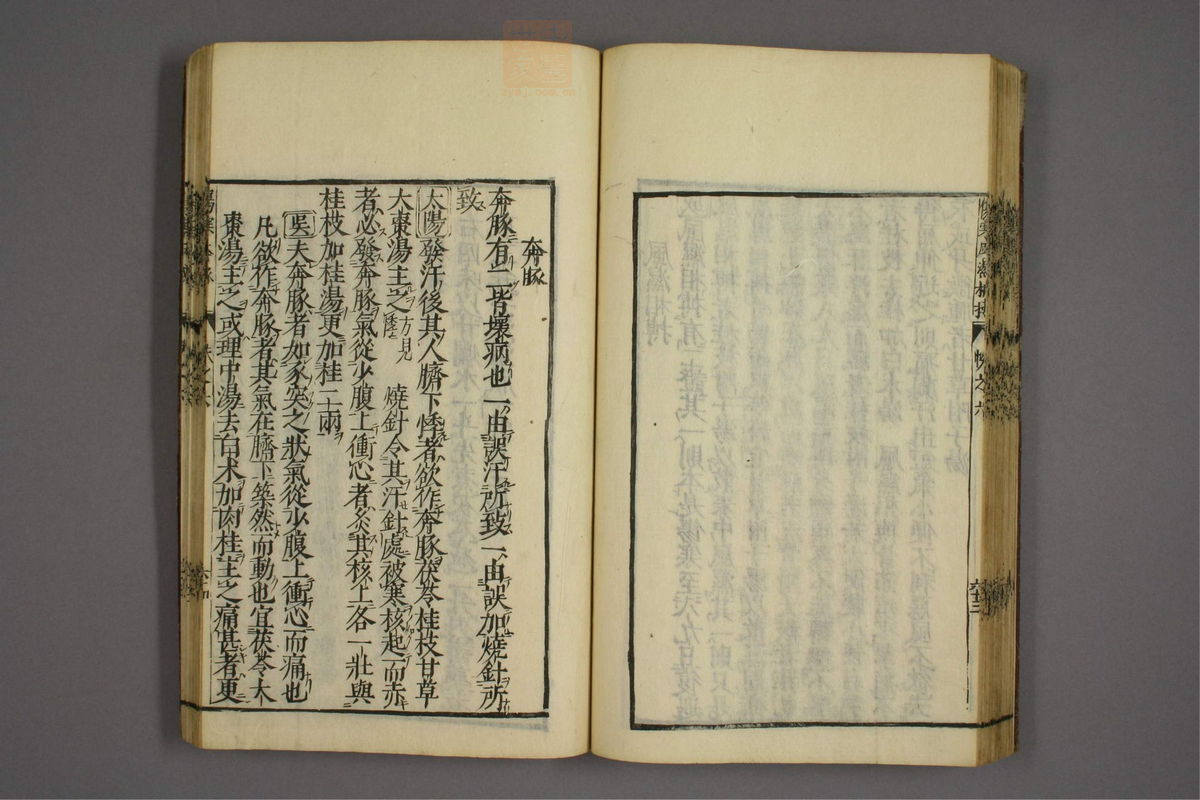 奔豚
奔豚有二皆壞病也一由誤汗所致一由誤加燒針所
致
太陽發汗後其人臍下悸者欲作奔豚茯苓桂枝甘草
大棗湯主之方見 燒針令其汗針處被寒核起而赤
者必發奔豚氣從少腹上衝心者灸其核上各一壯與
桂枝加桂湯更加桂二兩
吳夫奔豚者如豕突之狀氣從少腹上衝心而痛也
凡欲作奔豚者其氣在臍下築然而動也宜茯苓大
棗湯主之或理中湯去白术加肉桂主之痛甚者更